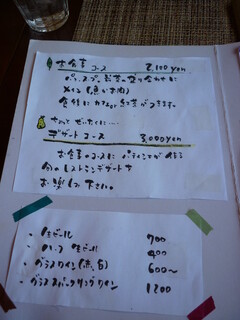 お食事コース 2,100yen
パン、スープ、前菜の盛り合わせに
メイン(魚かお肉)
食後にカフェor紅茶ができます。
ちょっとぜいたくに…
デザートコース 3,000yen
お食事のコースにパティシエが作る
旬のレストランデザートを
お楽しみ下さい。
・生ビール 700
・ハーフ生ビール 400
・グラスワイン(赤、白) 600〜
・グラススパークリングワイン 1200